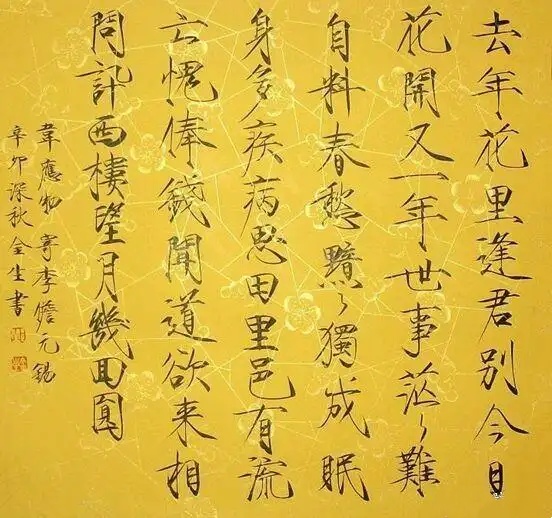 去年花里逢君别今日
花開又一年世事茫々難
自料春愁黯々獨成眠
身多疾病思田里邑有流
亡愧俸錢聞道欲来相
問訊西樓望月幾回圓
韋應物 寄李儋元錫
辛卯深秋全生書